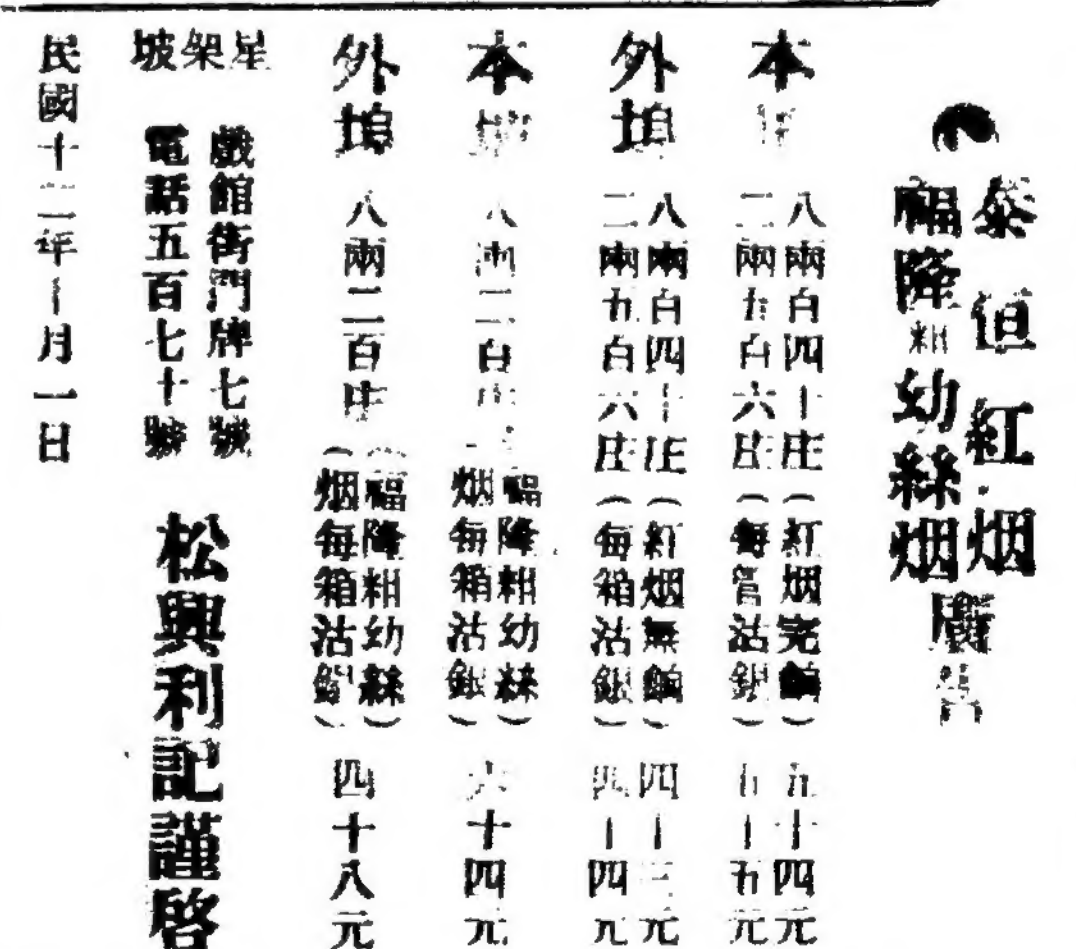 泰恒紅烟
福隆粗幼絲烟廣告
本埠
八兩百四十庄(紅烟完餉)五十四元
二兩五百六庄(每箱沽銀)五十五元
外埠
八兩百四十庄(紅烟無餉)四十三元
二兩五百六庄(每箱沽銀)四十四元
本埠
八兩二百庄(福隆粗幼絲烟每箱沽銀)六十四元
外埠
八兩二百庄(福隆粗幼絲烟每箱沽銀)四十八元
星架坡
戲館街門牌七號
電話五百七十號
松興利記謹啓
民國十二年十月一日